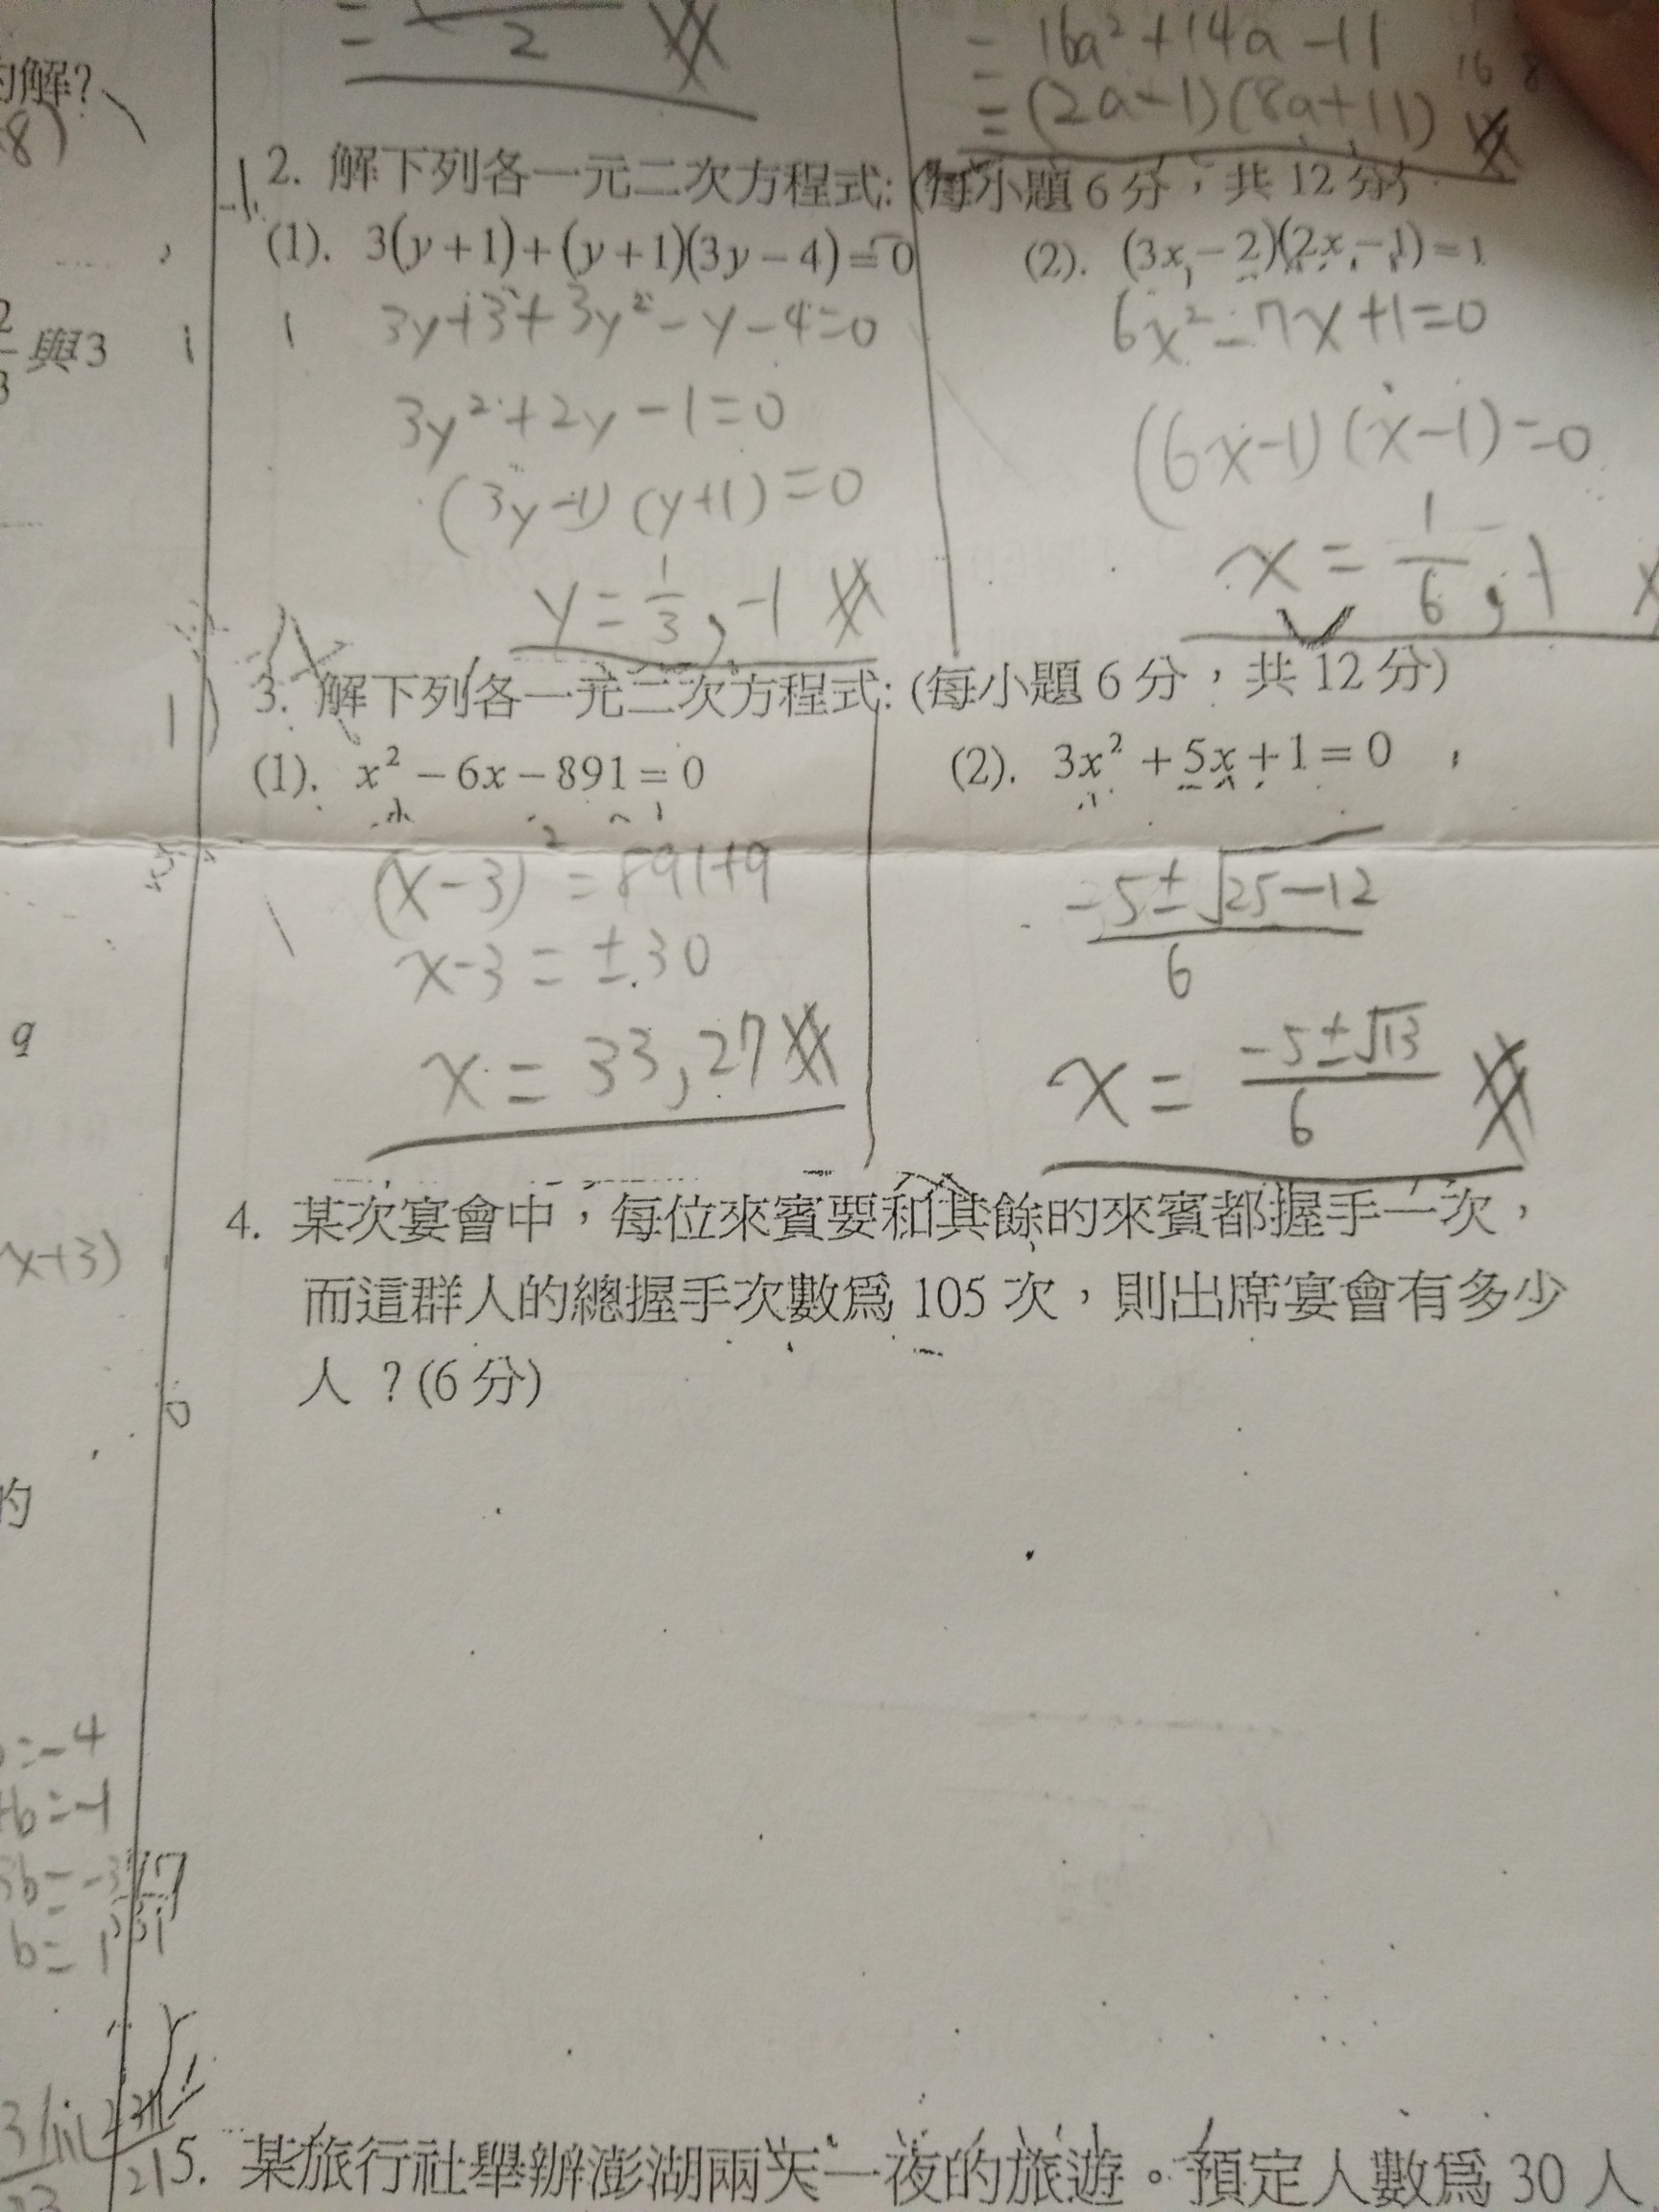 的解?
8)
2
3
與3
9
x+3)
的
=-4
+b=-1
b=
2
= 16a²+14a-11
= (2a-1)(8a+11)
2. 解下列各一元二次方程式: (每小題 6 分，共 12 分)
(1). 3(y+1)+(y+1)(3y-4)=0
3y+3+3y²-y-4=0
3y²+2y-1=0
(3y-1)(y+1)=0
y=1/3,-1
(2). (3x-2)(2x-1)=1
6x²-7x+1=0
(6x-1)(x-1)=0
x=1/6,1
3. 解下列各一元二次方程式: (每小題 6 分，共 12 分)
(1). x²-6x-891=0
(x-3)²=891+9
x-3=±30
x=33,27
(2). 3x²+5x+1=0
-5±√25-12
6
x=-5±√13
6
4. 某次宴會中，每位來賓要和其餘的來賓都握手一次，
而這群人的總握手次數為 105 次，則出席宴會有多少
人？(6 分)
5. 某旅行社舉辦澎湖兩天一夜的旅遊。預定人數為 30 人